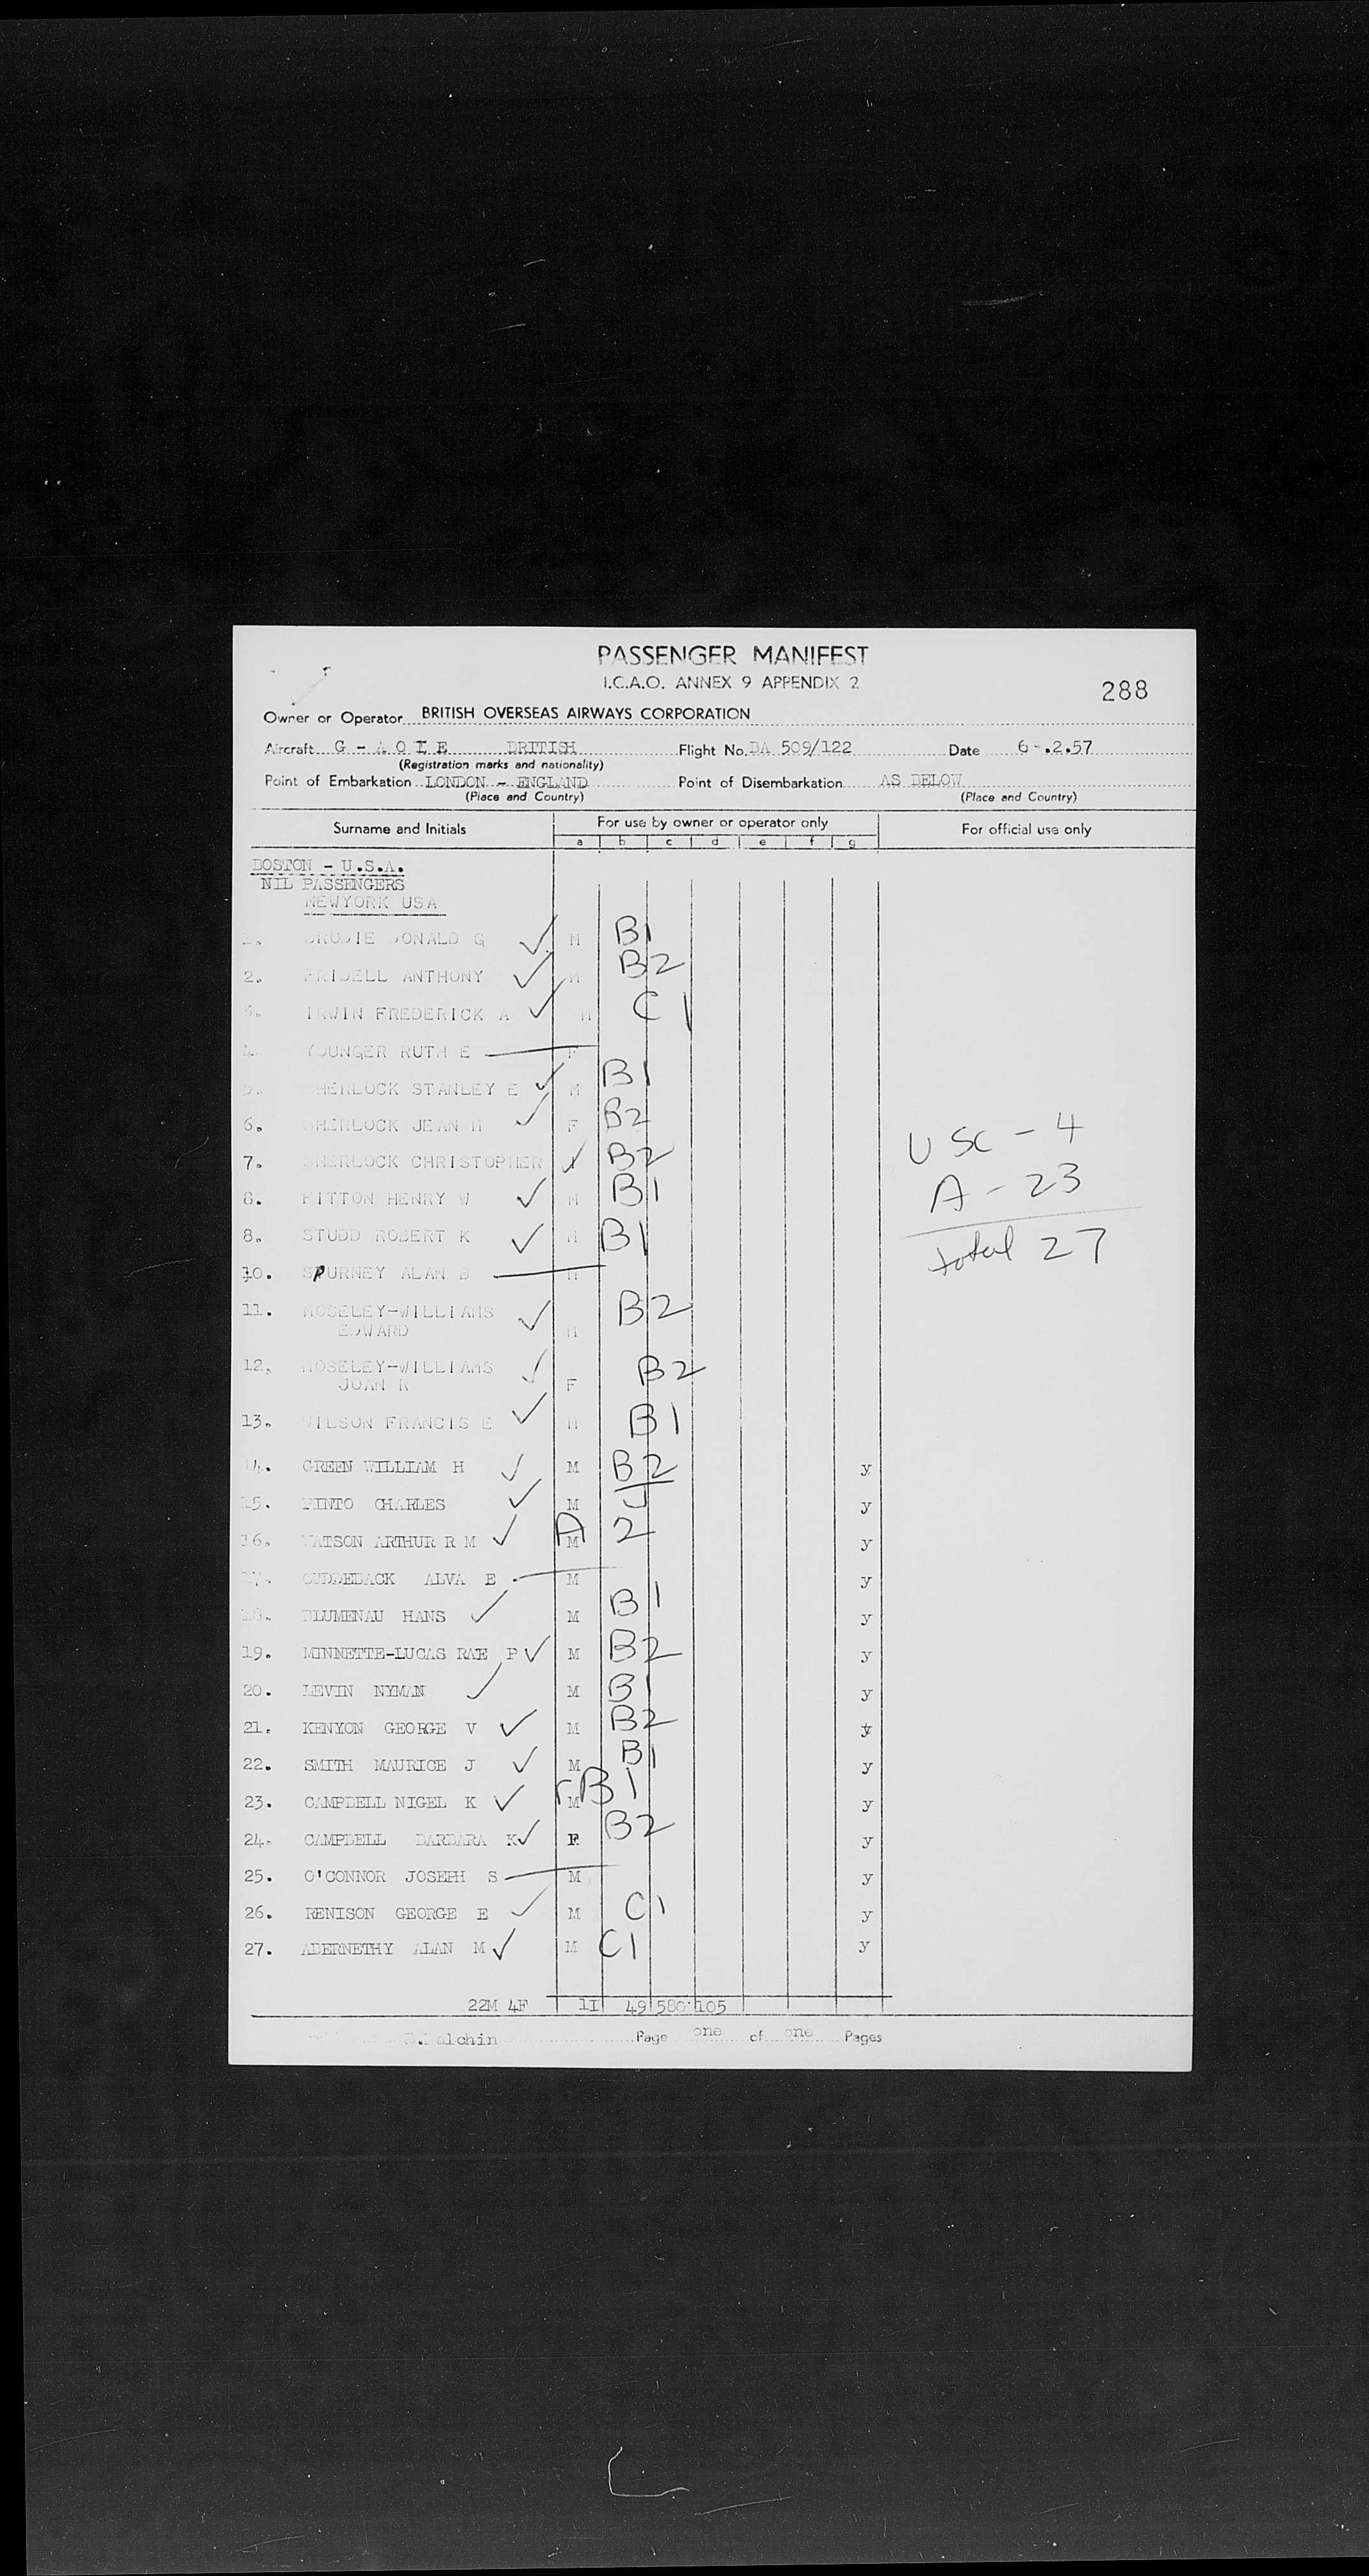 PASSENGER MANIFEST
I.C.A.O. ANNEX 9 APPENDIX 2
288
Owner or Operator BRITISH OVERSEAS AIRWAYS CORPORATION
Aircraft G - A O I E BRITISH Flight No. BA 509/122 Date 6-.2.57
(Registration marks and nationality)
Point of Embarkation LONDON - ENGLAND Point of Disembarkation AS BELOW
(Place and Country) (Place and Country)
Surname and Initials For use by owner or operator only For official use only
a b c d e f g
BOSTON - U.S.A.
NIL PASSENGERS
NEWYORK USA
1. BRODIE DONALD G ✓ M B1
2. FRIDELL ANTHONY ✓ M B2
3. IRWIN FREDERICK A ✓ M C1
4. YOUNGER RUTH E — F
5. SHERLOCK STANLEY E ✓ M B1
6. SHERLOCK JEAN M ✓ F B2
7. SHERLOCK CHRISTOPHER ✓ B2
8. FITTON HENRY W ✓ M B1
8. STUDD ROBERT K ✓ M B1
10. SPURNEY ALAN B — M
11. MOSELEY-WILLIAMS ✓ B2
EDWARD M
12. MOSELEY-WILLIAMS ✓ B2
JOAN R F
13. WILSON FRANCIS E ✓ M B1
14. GREEN WILLIAM H ✓ M B2 y
15. PINTO CHARLES ✓ M y
16. WATSON ARTHUR R M ✓ D M 2 y
17. CUDDEBACK ALVA E — M y
18. BLUMENAU HANS ✓ M B1 y
19. MINNETTE-LUCAS RAE P ✓ M B2 y
20. LEVIN NYMAN ✓ M B1 y
21. KENYON GEORGE V ✓ M B2 y
22. SMITH MAURICE J ✓ M B1 y
23. CAMPBELL NIGEL K ✓ M B1 y
24. CAMPBELL BARBARA K ✓ F B2 y
25. O'CONNOR JOSEPH S — M y
26. RENISON GEORGE E ✓ M C1 y
27. ABERNETHY ALAN M ✓ M C1 y
USC - 4
A - 23
total 27
22M 4F 1I 49 580 105
Page one of one Pages